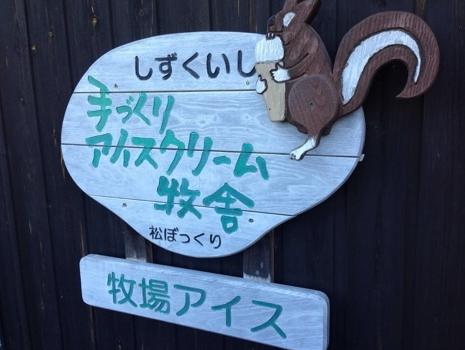 しずくいし
手づくり
アイスクリーム
牧舎
松ぼっくり
牧場アイス